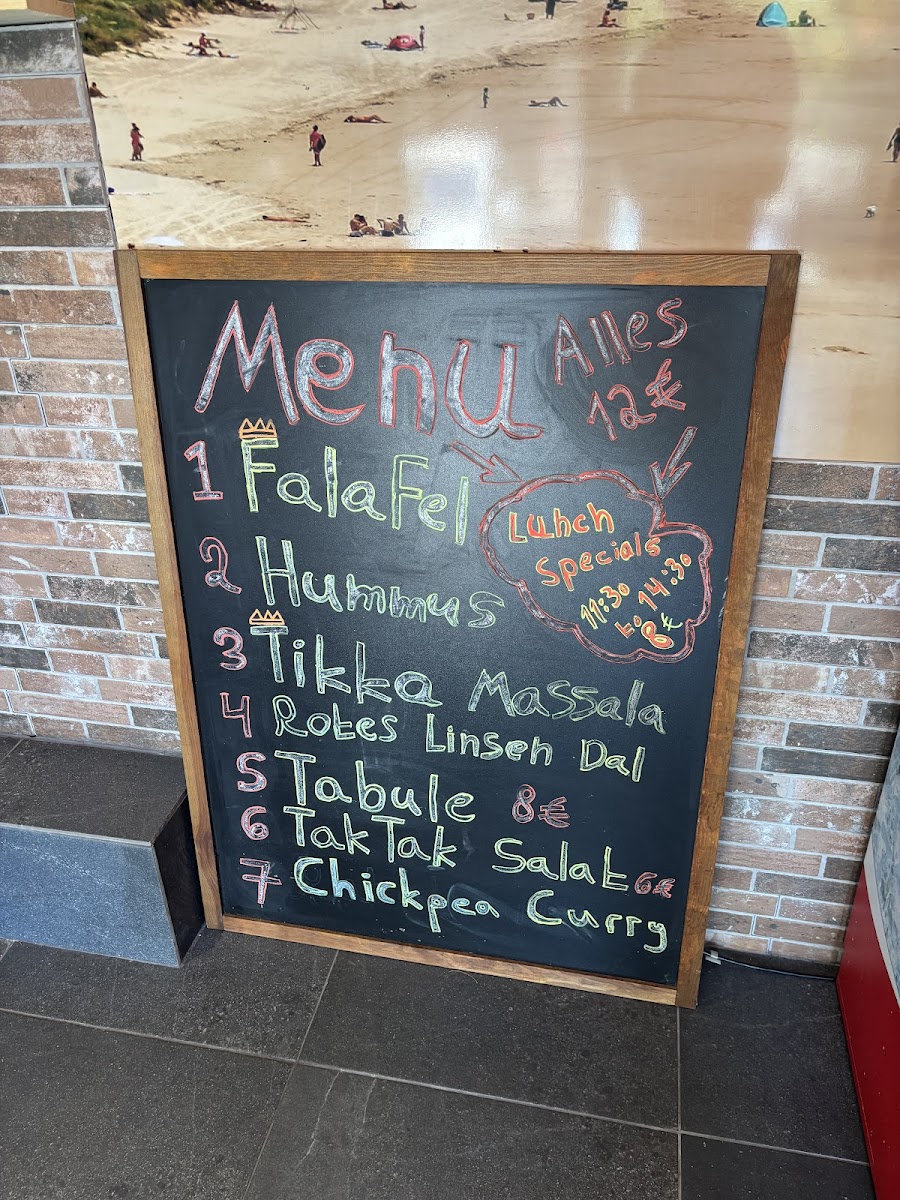 Menu
Alles
12€
1 Falafel
2 Hummus
Lunch
Specials
11:30
to 14:30
8€
3 Tikka Massala
4 Rotes Linsen Dal
5 Tabule 8€
6 TakTak Salat 6€
7 Chickpea Curry